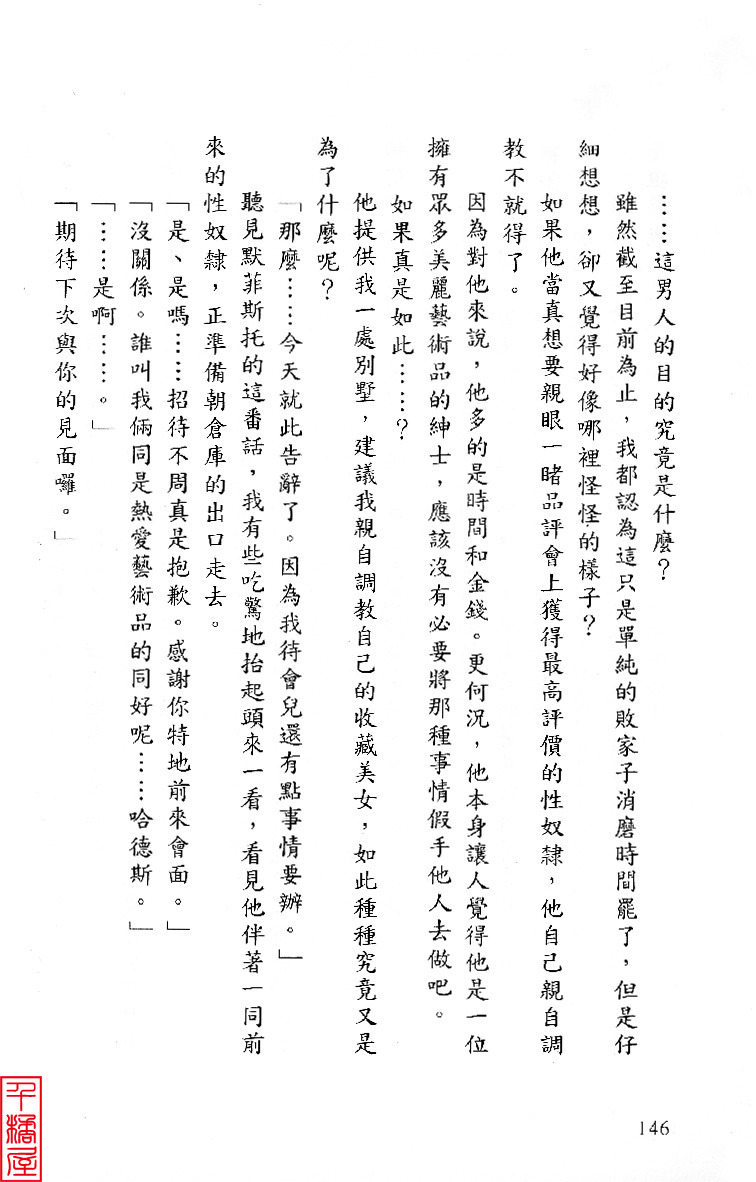 ……這男人的目的究竟是什麼？
雖然截至目前為止，我都認為這只是單純的敗家子消磨時間罷了，但是仔
細想想，卻又覺得好像哪裡怪怪的樣子？
如果他當真想要親眼一睹品評會上獲得最高評價的性奴隸，他自己親自調
教不就得了。
因為對他來說，他多的是時間和金錢。更何況，他本身讓人覺得他是一位
擁有眾多美麗藝術品的紳士，應該沒有必要將那種事情假手他人去做吧。
如果真是如此……？
他提供我一處別墅，建議我親自調教自己的收藏美女，如此種種究竟又是
為了什麼呢？
「那麼……今天就此告辭了。因為我待會兒還有點事情要辦。」
聽見默菲斯托的這番話，我有些吃驚地抬起頭來一看，看見他伴著一同前
來的性奴隸，正準備朝倉庫的出口走去。
「是、是嗎……招待不周真是抱歉。感謝你特地前來會面。」
「沒關係。誰叫我倆同是熱愛藝術品的同好呢……哈德斯。」
「……是啊……。」
「期待下次與你的見面囉。」
146
千橘屋